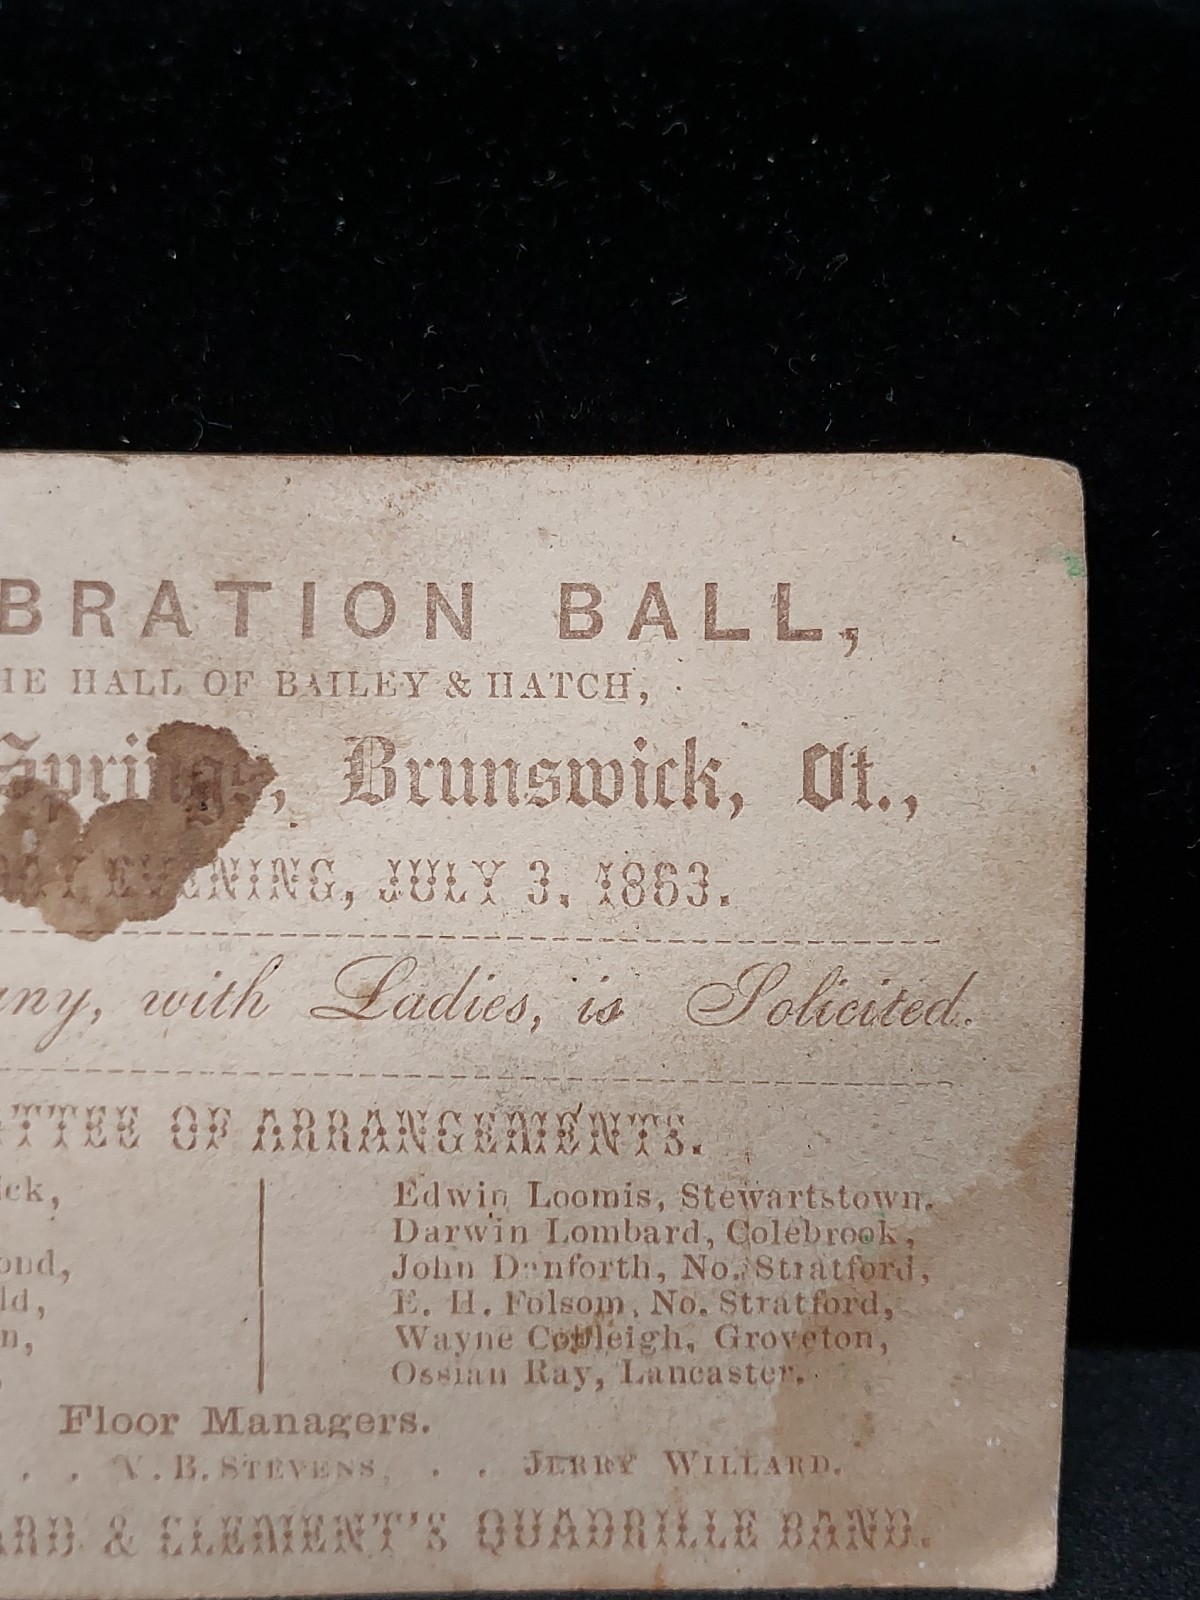 BRATION BALL,
HE HALL OF BAILEY & HATCH,
Springs, Brunswick, Vt.,
EVENING, JULY 3, 1863.
any, with Ladies, is Solicited.
TTEE OF ARRANGEMENTS.
ick,
ond,
ld,
n,
Edwin Loomis, Stewartstown.
Darwin Lombard, Colebrook,
John Danforth, No. Stratford,
E. H. Folsom, No. Stratford,
Wayne Cobleigh, Groveton,
Ossian Ray, Lancaster.
Floor Managers.
. . V. B. STEVENS, . . JERRY WILLARD.
ARD & CLEMENT'S QUADRILLE BAND.